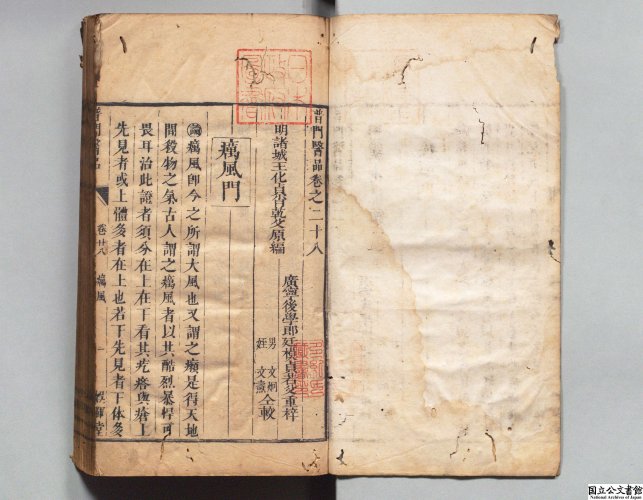 普門醫品卷之二十八
明諸城王化貞肖乾父原編
廣寧後學郎廷模貞若父重梓
男 文烱
姪 文燾 仝較
癘風門
論癘風即今之所謂大風也又謂之癩是得天地
間殺物之氣古人謂之癘風者以其酷烈暴悍可
畏耳治此證者須分在上在下看其疙瘩與瘡上
先見者或上體多者在上也若下先見者下体多
普門醫品
卷廿八 癘風 一
日本政府圖書
国立公文書館
National Archives of Japan